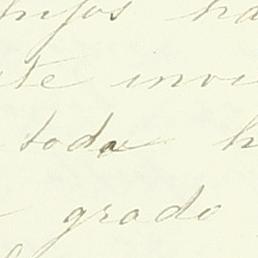 hijos ha
te invi
toda h
grado